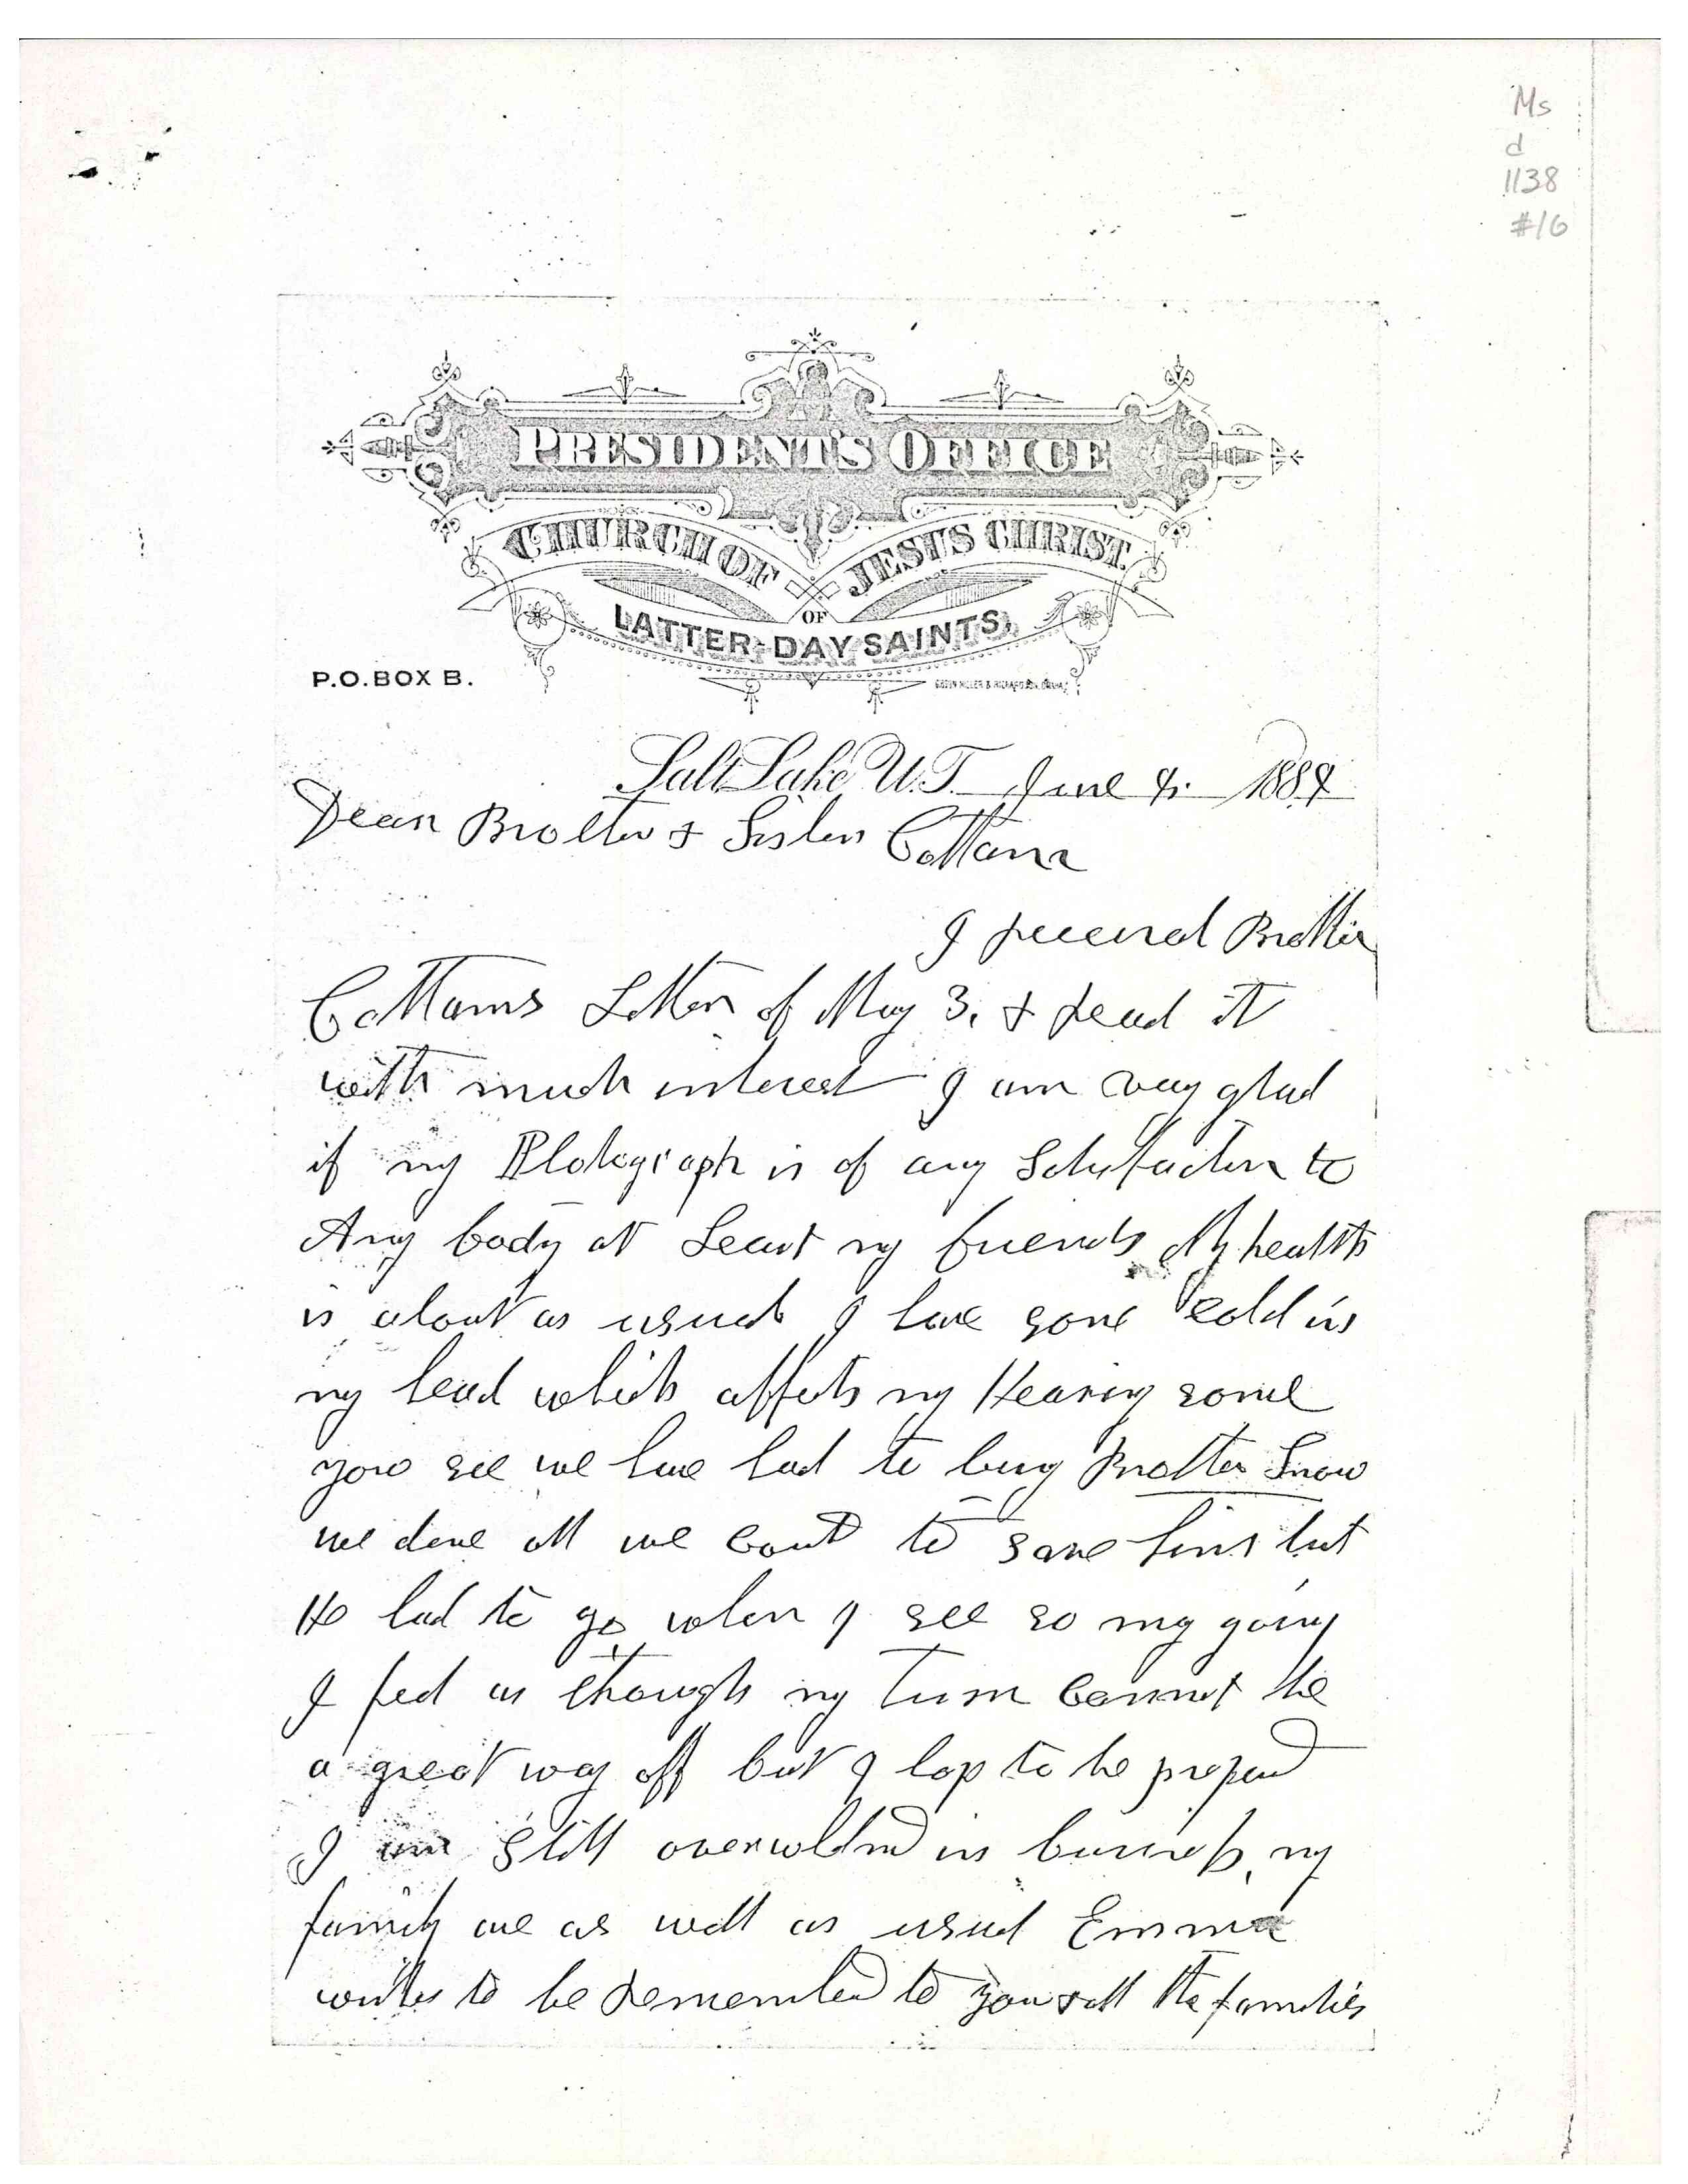 Ms
d
1138
#16
PRESIDENT'S OFFICE
CHURCH OF JESUS CHRIST
OF
LATTER-DAY SAINTS,
P.O. BOX B.
Salt Lake U.T. June 4. 1888
Dear Brother & Sister Cottam
I received Brother
Cottams Letter of May 3, & read it
with much interest I am very glad
if my Photograph is of any Satisfaction to
Any body at Least my friends My health
is about as usual I have some cold in
my head which affects my Hearing some
you see we have had to bury Brother Snow
we done all we could to save him but
He had to go when I see so many going
I feel as though my turn cannot be
a great way off but I hope to be prepared
I am Still overwhelmed in business, my
family are as well as usual Emma
wishes to be remembered to you & all the families